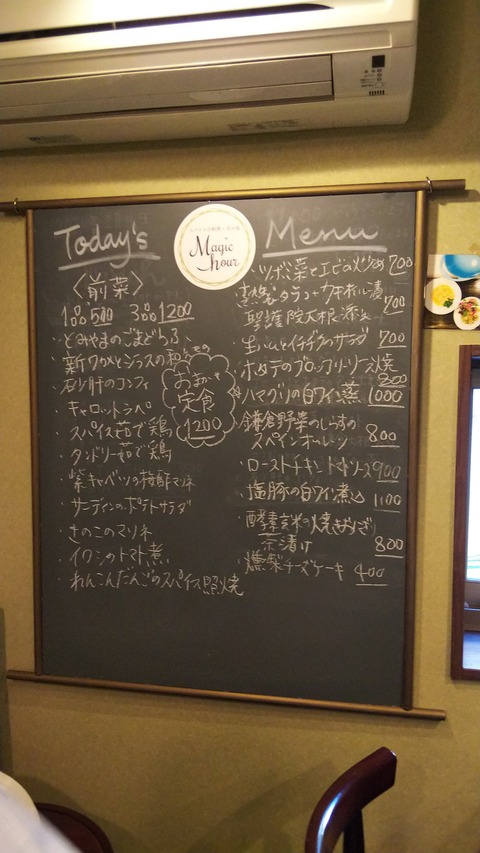 Today's
Menu
Magic
hour
〈前菜〉
1品500 3品1200
とみやまのごまどうふ
新ワカメとシラスの和え
砂肝のコンフィ
キャロットラペ
スパイス茹で鶏
タンドリー茹で鶏
紫キャベツの梅酢マリネ
サーディンのポテトサラダ
きのこのマリネ
イワシのトマト煮
れんこんだんごのスパイス照焼
おまかせ
定食
1200
ツボミ菜とエビの炒め 700
聖護院大根添え 700
生ハムとイチヂクのサラダ 700
ホタテのブロッコリーソース焼
800
ハマグリの白ワイン蒸 1000
鎌倉野菜のしらすの
スペインオムレツ 800
ローストチキン トマトソース 900
塩豚の白ワイン煮込 1100
酵素玄米の焼きおにぎり
茶漬け 800
燻製チーズケーキ 400